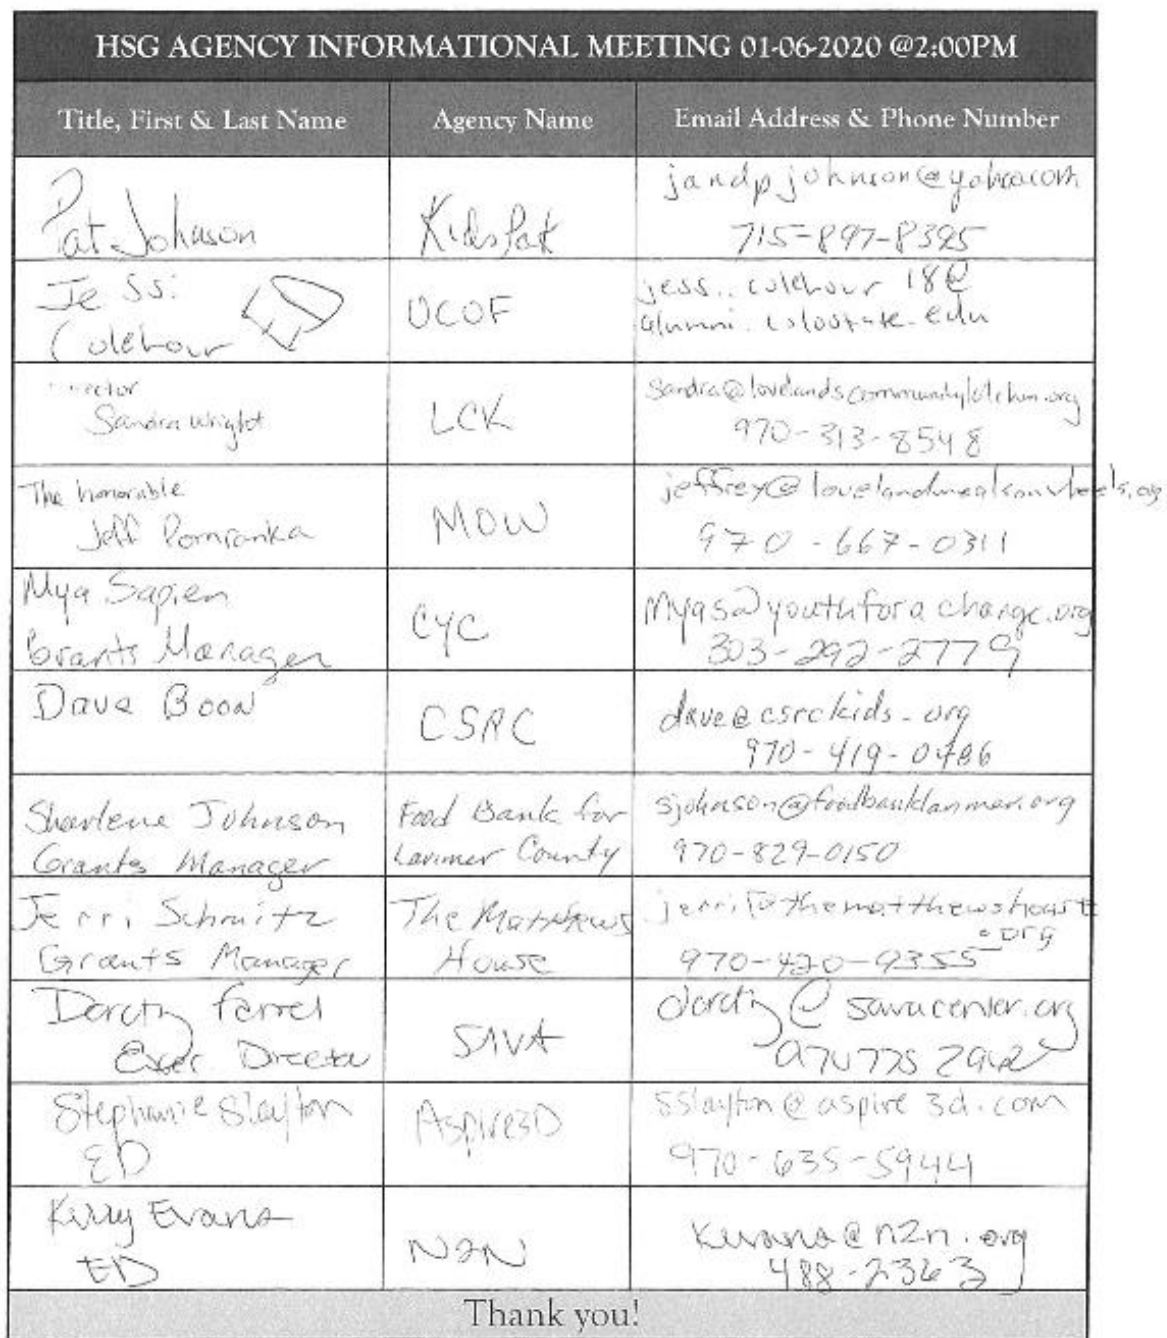 HSG AGENCY INFORMATIONAL MEETING 01-06-2020 @2:00PM
Title, First & Last Name
Agency Name
Email Address & Phone Number
Pat Johnson
KidsPak
jandpjohnson@yahoo.com
715-897-8395
Jessi
Colehour
UCOF
jessi.colehour18@
alumni.colostate.edu
Sandra Wright
LCK
970-313-8548
The honorable
Jeff Pomranka
MOW
jeffrey@lovelandmealsonwheels.org
970-667-0311
Mya Sapien
Grants Manager
CYC
Myas@youthforachange.org
303-292-2779
Dave Boon
CSRC
dave@csrckids.org
970-419-0486
Sharlene Johnson
Grants Manager
Food Bank for
Larimer County
sjohnson@foodbanklarimer.org
970-829-0150
Jerri Schmitz
Grants Manager
The Matthews
House
jerri@thematthewshouse
.org
970-420-9355
Exec. Director
SAVA
@savacenter.org
Stephanie Slayton
ED
Aspire3D
sslayton@aspire3d.com
970-635-5944
Kelly Evans
ED
N2N
kevans@n2n.org
488-2363
Thank you!